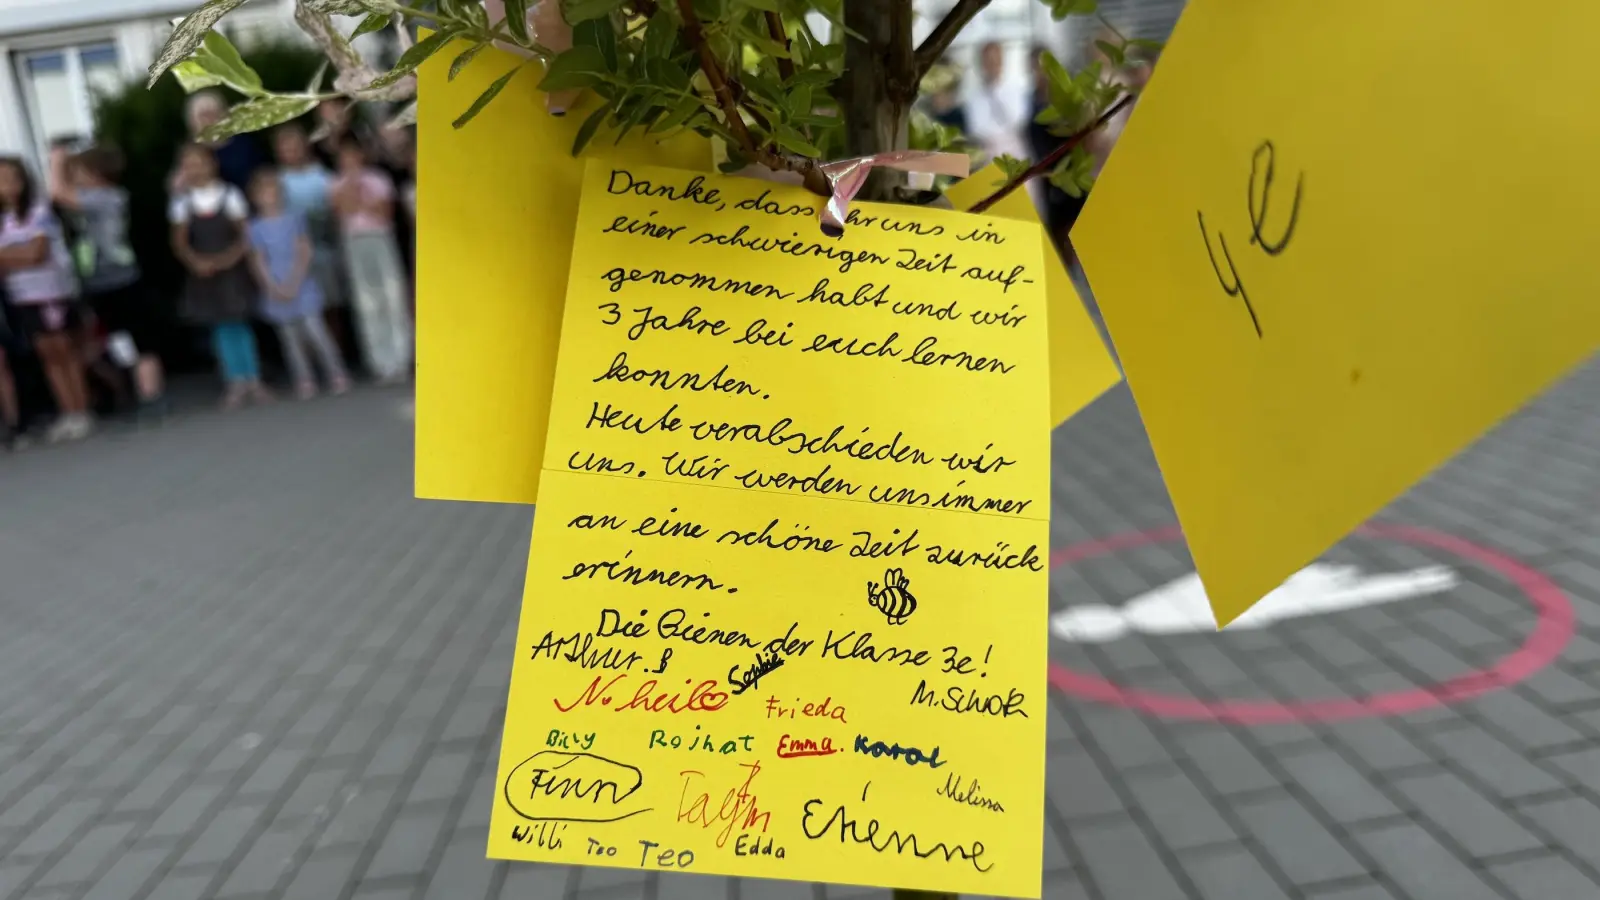 Danke, dass Ihr uns in
einer schwierigen Zeit auf-
genommen habt und wir
3 Jahre bei euch lernen
konnten.
Heute verabschieden wir
uns. Wir werden uns immer
an eine schöne Zeit zurück
erinnern.
Die Bienen der Klasse 3e!
Arthur. B
Noheil
Sophie
Frieda
M. Scholz
Billy
Rojhat
Emma.
Karol
Finn
Taym
Etienne
Melissa
Willi
Teo
Edda